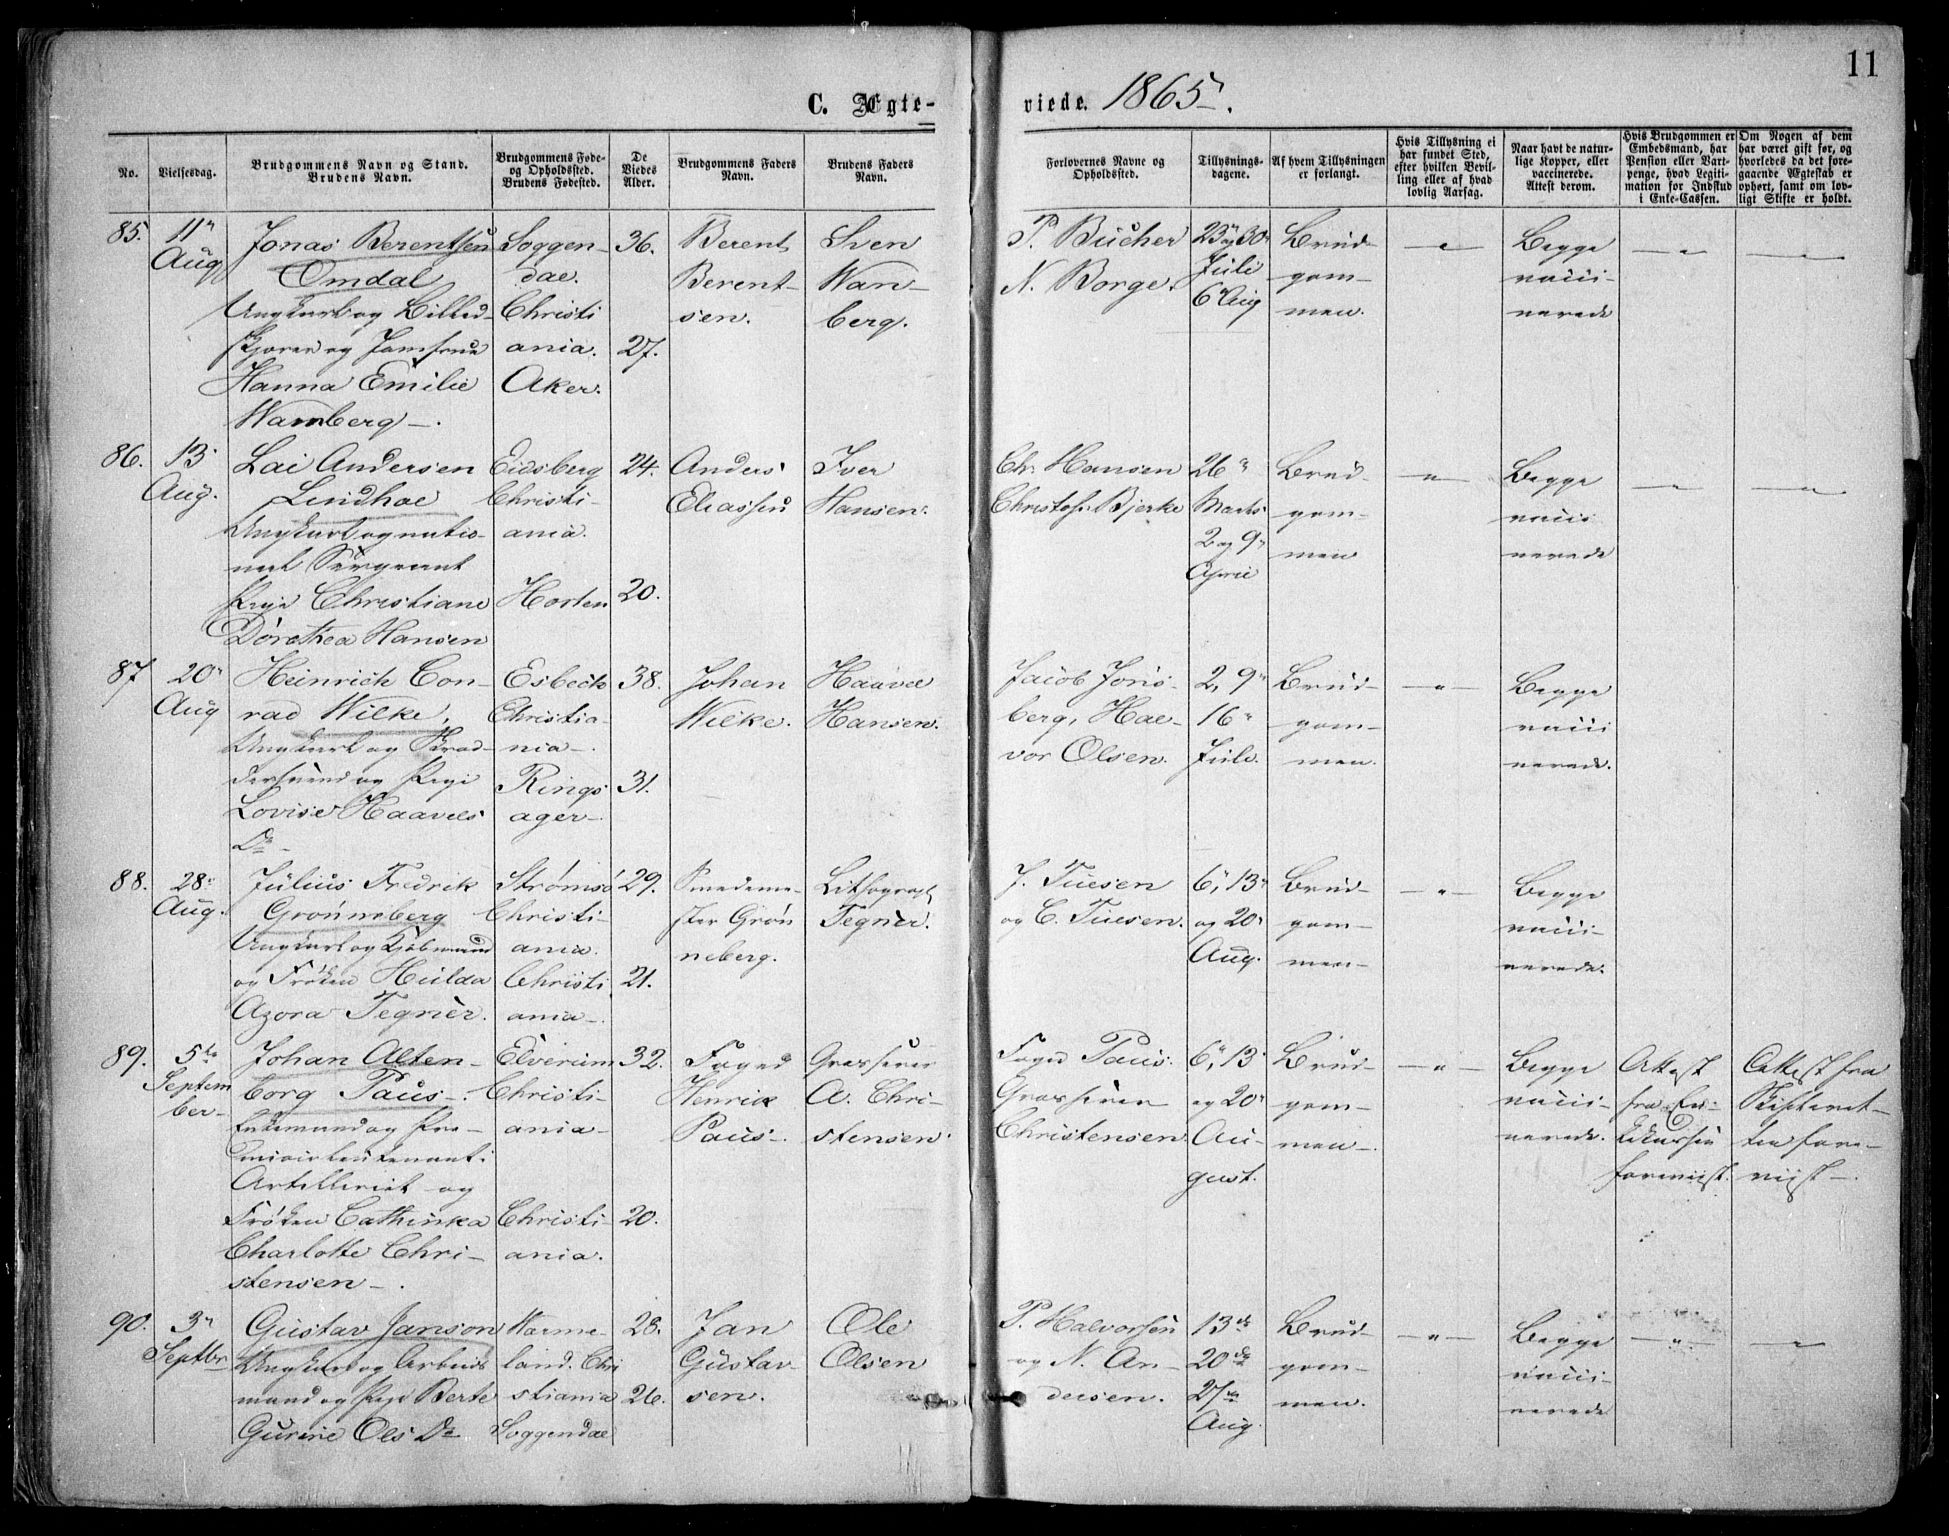 11
C. Ægte-
viede. 1865.
No.
Vielsesdag.
Brudgommens Navn og Stand.
Brudens Navn.
Brudgommens Føde-
og Opholdsted.
Brudens Fødested.
De
Viedes
Alder.
Brudgommens Faders
Navn.
Brudens Faders
Navn.
Forlovernes Navne og
Opholdsted.
Tillysnings-
dagene.
Af hvem Tillysningen
er forlangt.
Hvis Tillysning ei
har fundet Sted,
efter hvilken Bevil-
ling eller af hvad
lovlig Aarsag.
Naar havt de natur-
lige Kopper, eller
vaccinerede.
Attest derom.
Hvis Brudgommen er
Embedsmand, har
Pension eller Vart-
penge, hvad Legiti-
mation for Indskud
i Enke-Cassen.
Om Nogen af dem
har været gift før, og
hvorledes da det fore-
gaaende Ægteskab er
ophørt, samt om lov-
ligt Skifte er holdt.
85.
11"
Aug
Jonas Berentsen
Omdal
Ungkarl og Billed-
skjærer og Jomfrue
Hanna Emilie
Wamberg -.
Soggen-
dal.
Christi
ania.
Aker.
36.
27.
Berent
Berent-
sen.
Sven
Wam-
berg.
P. Bucher
N. Borge.
23 og 30"
Juli
6" Aug
Brud-
gom-
men.
Begge
vacci-
nerede
86.
13"
Aug.
Lai Andersen
Lindhoe
Ungkarl og natio-
nal Sergeant
Pige Christiane
Dorothea Hansen
Eidsberg
Christi-
ania.
Horten
24.
20.
Anders
Eliassen
Iver
Hansen.
Chr. Hansen
Christof. Bjerke
26"
Marts
2 og 9"
April
Brud-
gom-
men
Begge
vacci
nerede
87
20"
Aug
Heinrich Con-
rad Wilke,
Ungkarl og Skræd-
dersvend og Pige
Lovise Haavels
Dr -
Esbeck
Christia-
nia-.
Rings
ager-.
38.
31.
Johan
Wilke.
Haavel
Hansen.
Jacob Jons-
berg, Hal-
vor Olsen.
2, 9"
16"
Juli.
Brud-
gom-
men.
Begge
vacci
nerede.
88.
28"
Aug.
Julius Fredrik
Grønneberg
Ungkarl og Kjøbmand
og Frøken Hulda
Azora Tegnèr.
Strømsø
Christi-
ania.
Christi
ania-.
29.
21.
Smedeme-
ster Grøn
neberg.
Lithograf
Tegnèr.
J. Tuesen
og C. Tuesen.
6", 13"
og 20"
Aug.
Brud-
gom-
men-
Begge
vacci-
nerede.
89.
5te
Septem
ber-
Johan Alten-
borg Paus-.
Enkemand og Pre-
mierlieutenant i
Artilleriet og
Frøken Cathinka
Charlotte Chri-
stensen-.
Elverum
Christi-
ania-
Christi-
ania.
32.
20.
Foged
Henrik
Paus-.
Grosserer
A. Chri-
stensen.
Foged Paus.
Grosserer
Christensen.
6", 13"
og 20"
Au-
gust.
Brud-
gom-
men-.
Begge
vacci-
nerede.
Attest
fra En-
kekassen
foreviist.
Attest fra
Skifteret-
ten fore-
viist-.
90.
3"
Septbr
Gustav Janson
Ungkarl og Arbeids
mand og Pige Berte
Gurine Ols Dr
Warme-
land. Chri
stiania
Soggendal
28.
26.
Jan
Gustav-
sen.
Ole
Olsen
P. Halvorsen
og N. An-
dersen.
13de
20de
27de
Aug.
Brud-
gom-
men.
Begge
vacci-
nerede